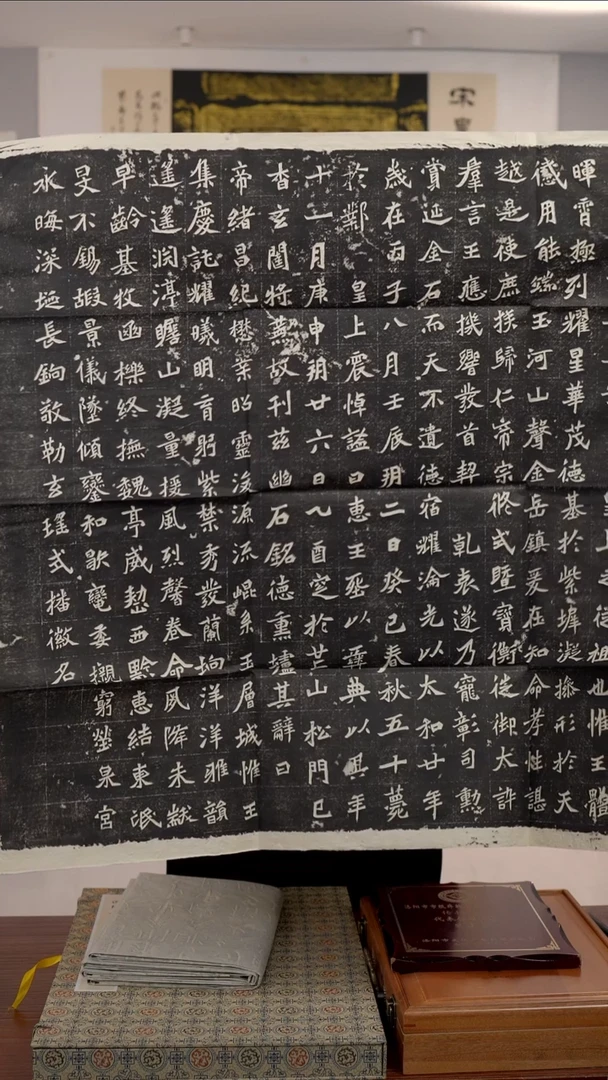 上之從祖也惟王體
暉霄極列耀星華茂德基於紫墀凝操形於天
感用能端玉河山聲金岳鎮爰在知命孝性諶
越是使庶族歸仁帝宗攸式暨寶衡徙御大訊
羣言王應機響發首契乾衷遂乃寵彰司勳
賞延金石而天不遺德宿耀淪光以太和廿年
歲在丙子八月壬辰朔二日癸巳春秋五十薨
於鄴皇上震悼諡曰惠王葬以彝典以其年
十一月庚申朔廿六日乙酉窆於芒山松門已
杳玄闥將蕪故刊茲幽石銘德熏壚其辭曰
帝緒昌紀懋業昭靈浚源流崐系玉層城惟王
集慶託耀曦明育躬紫禁秀發蘭坰洋洋雅韻
遙遙淵渟瞻山凝量援風烈馨卷命夙降未黻
早齡基牧幽櫟終撫魏亭威整西黔惠結東氓
旻不錫嘏景儀墜傾鑾和歇轡委櫬窮塋泉宮
永晦深埏長扃敬勒玄瑤式播徽名